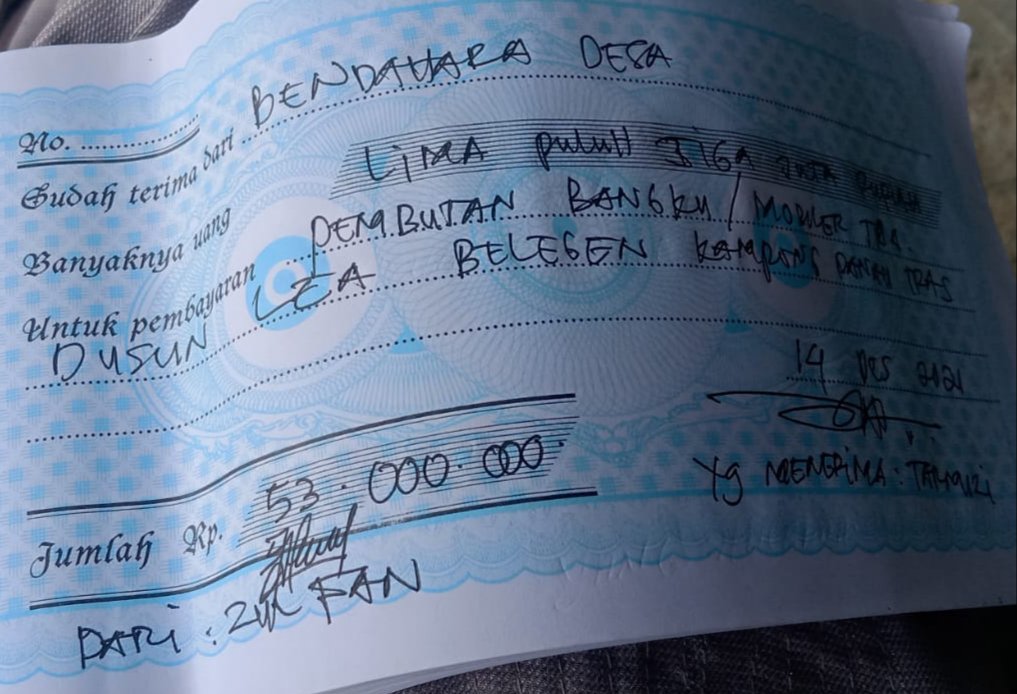 No. ............
Sudah terima dari BENDAHARA DESA
Banyaknya uang LIMA puluH TIGA JUTA RUPIAH
Untuk pembayaran PEMBUTAN BANGKU / MOBILER TPA.
DUSUN LEA BELEGEN KAMPONG PANAH TRAS
14 DES 2021
Jumlah Rp. 53.000.000.
Yg MENERIMA : TARMIZI
DARI : ZUL FAN